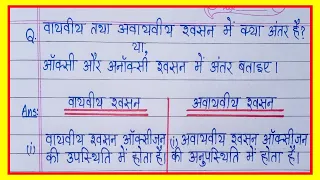 Q. वायवीय तथा अवायवीय श्वसन में क्या अंतर है?
या,
ऑक्सी और अनॉक्सी श्वसन में अंतर बताइए।
Ans:
वायवीय श्वसन
अवायवीय श्वसन
(i) वायवीय श्वसन ऑक्सीजन
की उपस्थिति में होता है।
(i) अवायवीय श्वसन ऑक्सीजन
की अनुपस्थिति में होता है।